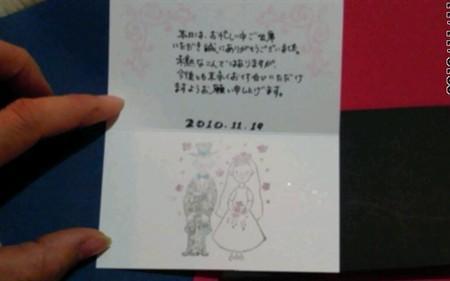 本日は、お忙しい中ご出席
いただき誠にありがとうございました。
未熟な二人ではありますが、
今後とも末永くお付き合いいただけ
ますようお願い申し上げます。
2010.11.19